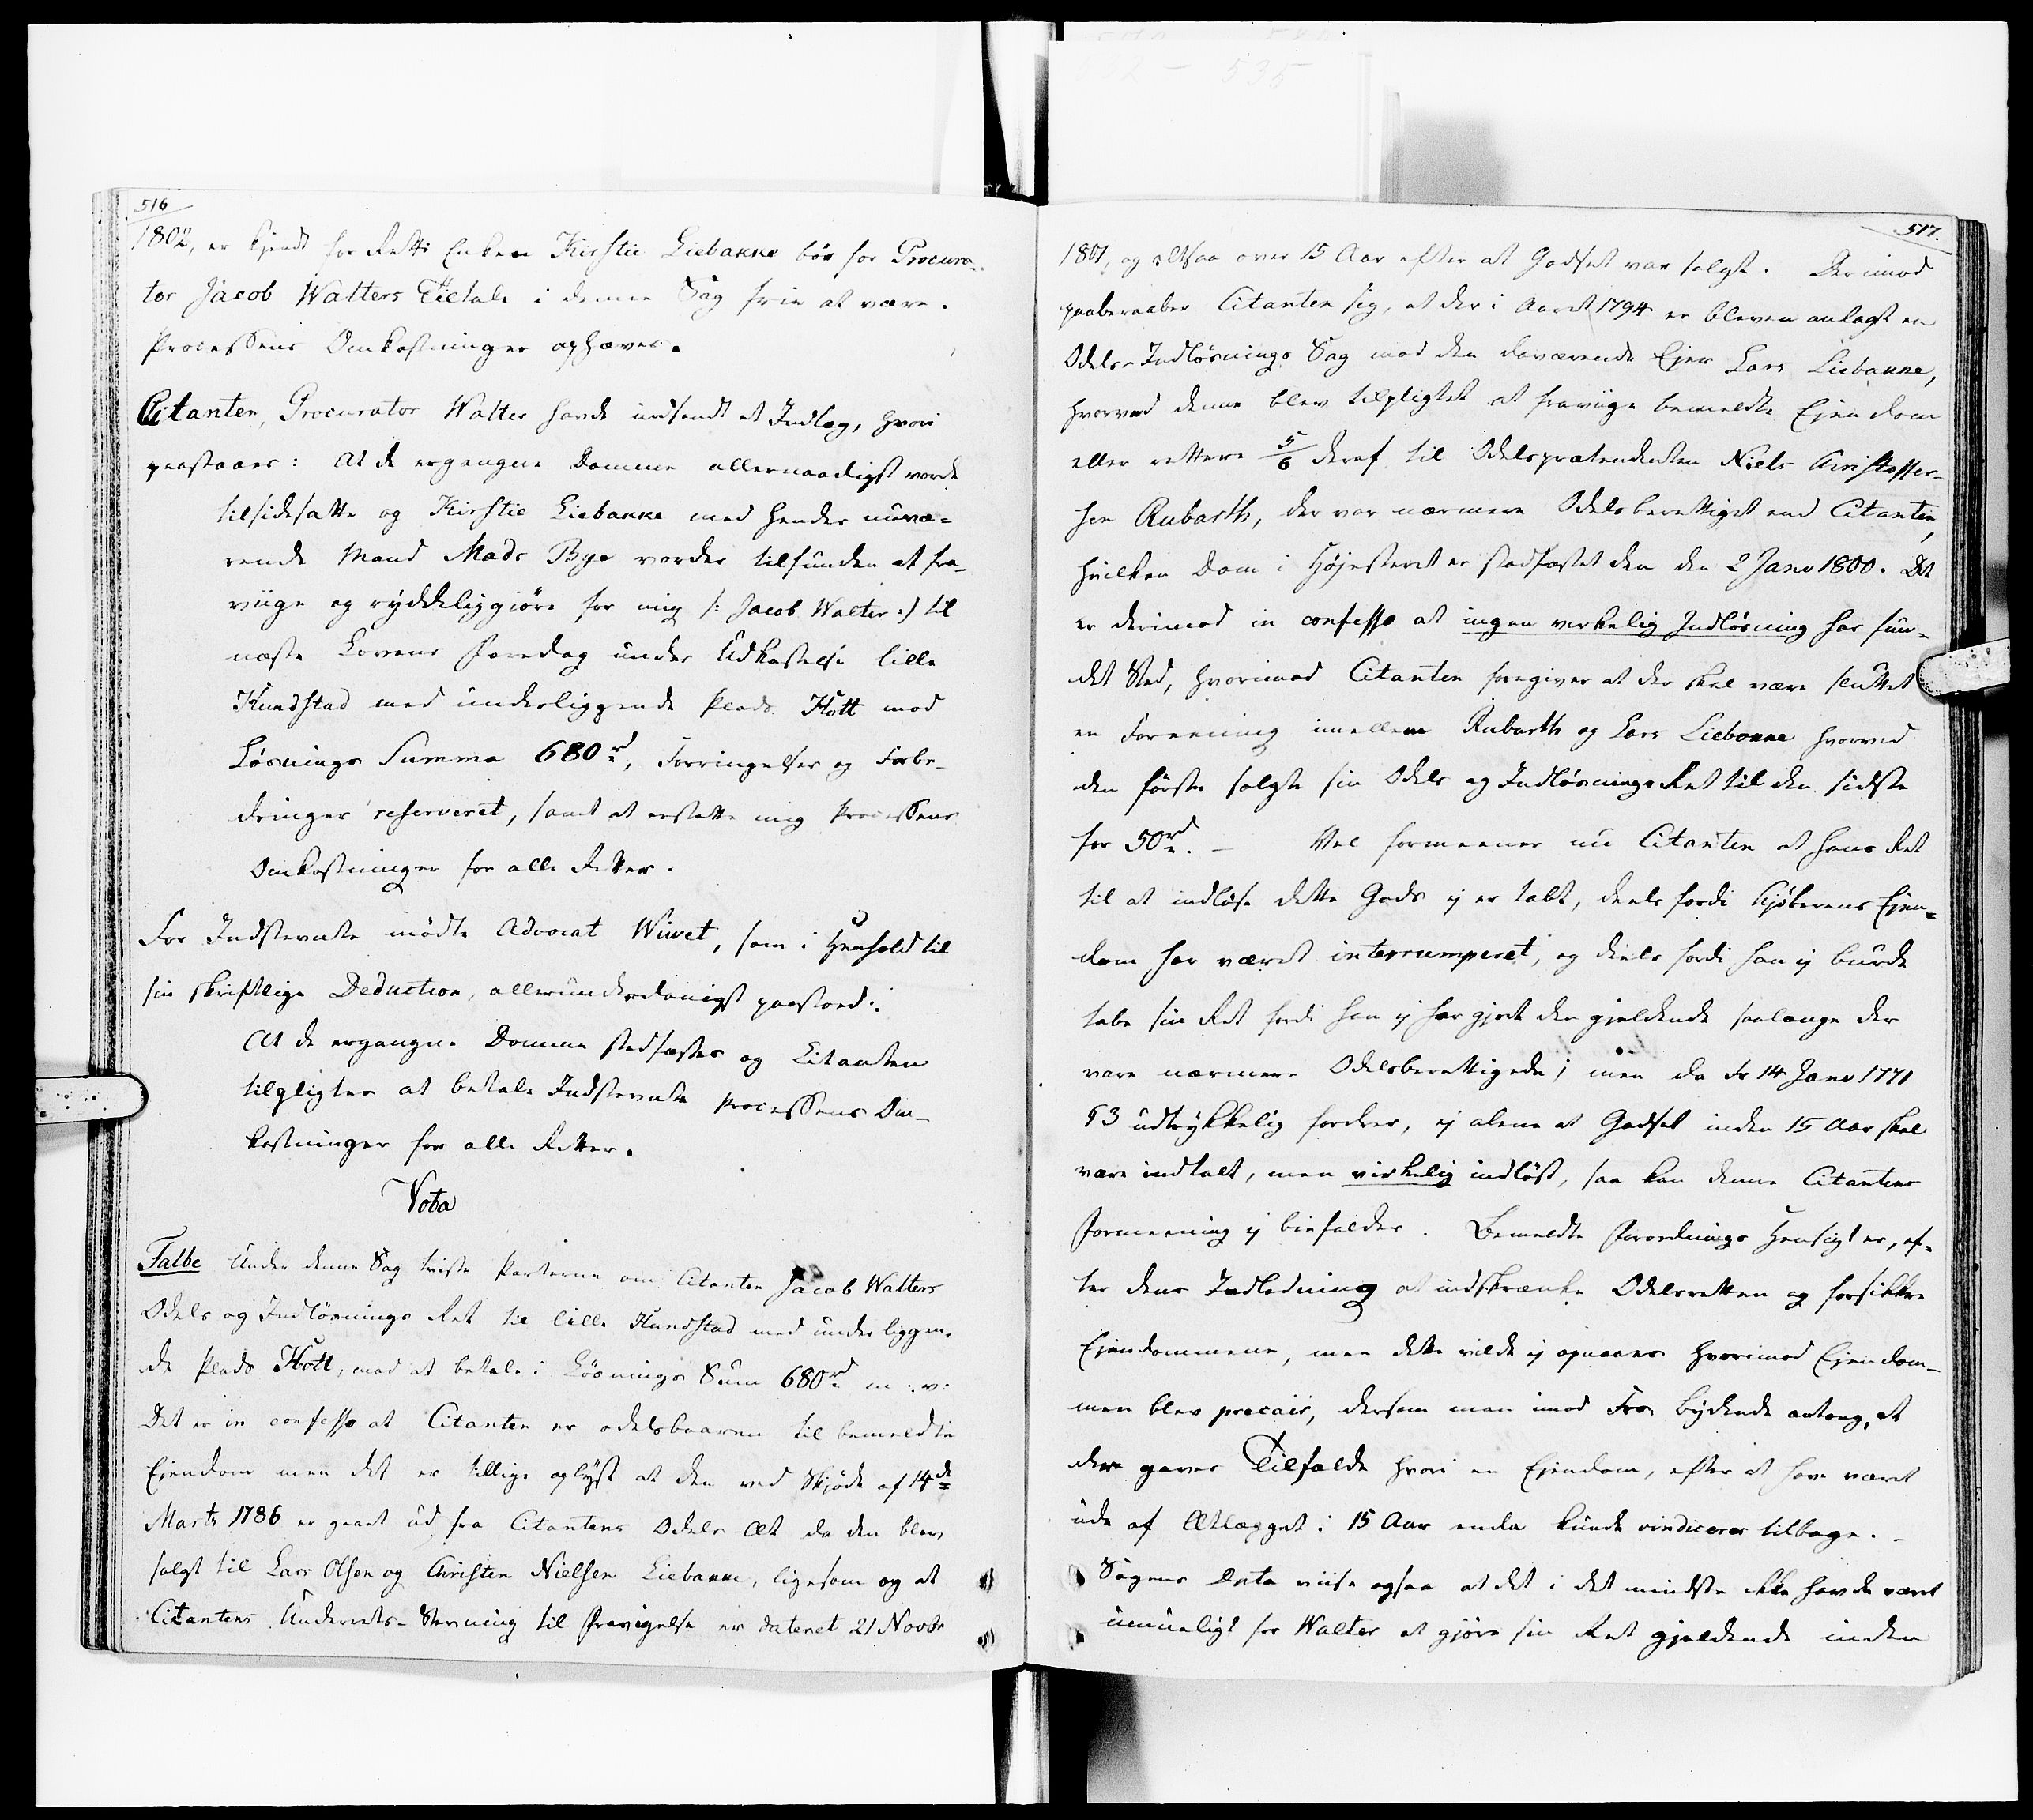 516
1802, er kjendt for Ret: Enken Kirstie Liebakke bör for Procura-
tor Jacob Walters Tiltale i denne Sag frie at være.
Processens Omkostninger ophæves.
Citanten, Procurator Walter havde indsendt et Indlæg, hvori
paastaaes: At de ergangne Domme allernaadigst vorde
tilsidesatte og Kirstie Liebakke med hendes nuvæ-
rende Mand Mads Bye vorder tilfunden at fra-
viige og ryddeliggjöre for mig /: Jacob Walter :/ til
næste Lovens Faredag under Udkastelse lille
Kundstad med underliggende Plads Hott mod
Lösnings Summa 680 rd, Forringelser og Forbe-
dringer reserveret, samt at erstatte mig Processens
Omkostninger for alle Retter.
For Indstevnte mödte Advocat Wivet, som i Henhold til
sin skriftlige Deduction, allerunderdanigst paastod:
At de ergangne Domme stadfæstes og Citanten
tilpligtes at betale Indstevnte Processens Om-
kostninger for alle Retter.
Vota
Falbe Under denne Sag tviste Parterne om Citanten Jacob Walters
Odels og Indlösnings Ret til lille Kundstad med underliggen-
de Plads Hott, mod at betale i Lösnings Sum 680 rd m: v:
Det er in confesso at Citanten er odelsbaaren til bemeldte
Eiendom men det er tillige oplyst at den ved Skjöde af 14de
Marts 1786 er gaaet ud fra Citantens Odels Æt da den blev
solgt til Lars Olsen og Christen Nielsen Liebakke, ligesom og at
Citantens Underrets-Stevning til Fravigelse er dateret 21 Novbr
517.
1801, og altsaa over 15 Aar efter at Godset var solgt. Derimod
paaberaaber Citanten sig, at der i Aaret 1794 er bleven anlagt en
Odels-Indlösnings Sag mod den daværende Ejer Lars Liebakke,
hvorved denne blev tilpligtet at fraviige bemeldte Ejendom
eller rettere 5/6 deraf til Odelsprætendenten Niels Christoffer-
sen Rubarth, der var nærmere Odelsberettiget end Citanten,
hvilken Dom i Höjesteret er stadfæstet den den 2 Janv 1800. Det
er derimod in confesso at ingen virkelig Indlösning har fun-
det Sted, hvorimod Citanten foregiver at der skal være sluttet
en Foreening imellem Rubarth og Lars Liebakke hvorved
den förste solgte sin Odels og Indlösnings Ret til den sidste
for 50 rd. – Vel formeener nu Citanten at hans Ret
til at indlöse dette Gods ej er tabt, deels fordi Kjöberens Ejen-
dom har været interrumperet, og deels fordi han ej burde
tabe sin Ret fordi han ej har gjort den gjeldende saalænge der
vare nærmere Odelsberettigede; men da Fr 14 Janv 1771
§3 udtrykkelig fordrer, ej alene at Godset inden 15 Aar skal
være indtalt, men virkelig indlöst, saa kan denne Citantens
Formeening ej biefaldes. Bemeldte Forordnings Hensigt er, ef-
ter dens Indledning at indskrænke Odelsretten og forsikkre
Eiendommene, men dette vilde ej opnaaes hvorimod Eiendom-
men blev precair, dersom man imod Frs bydende antog, at
der gaves Tilfælde hvori en Ejendom, efter at have været
ude af Ætlægget i 15 Aar enda kunde vindiceres tilbage. –
Sagens Data viise ogsaa at det i det mindste ikke havde været
umueligt for Walter at gjöre sin Ret gjeldende inden